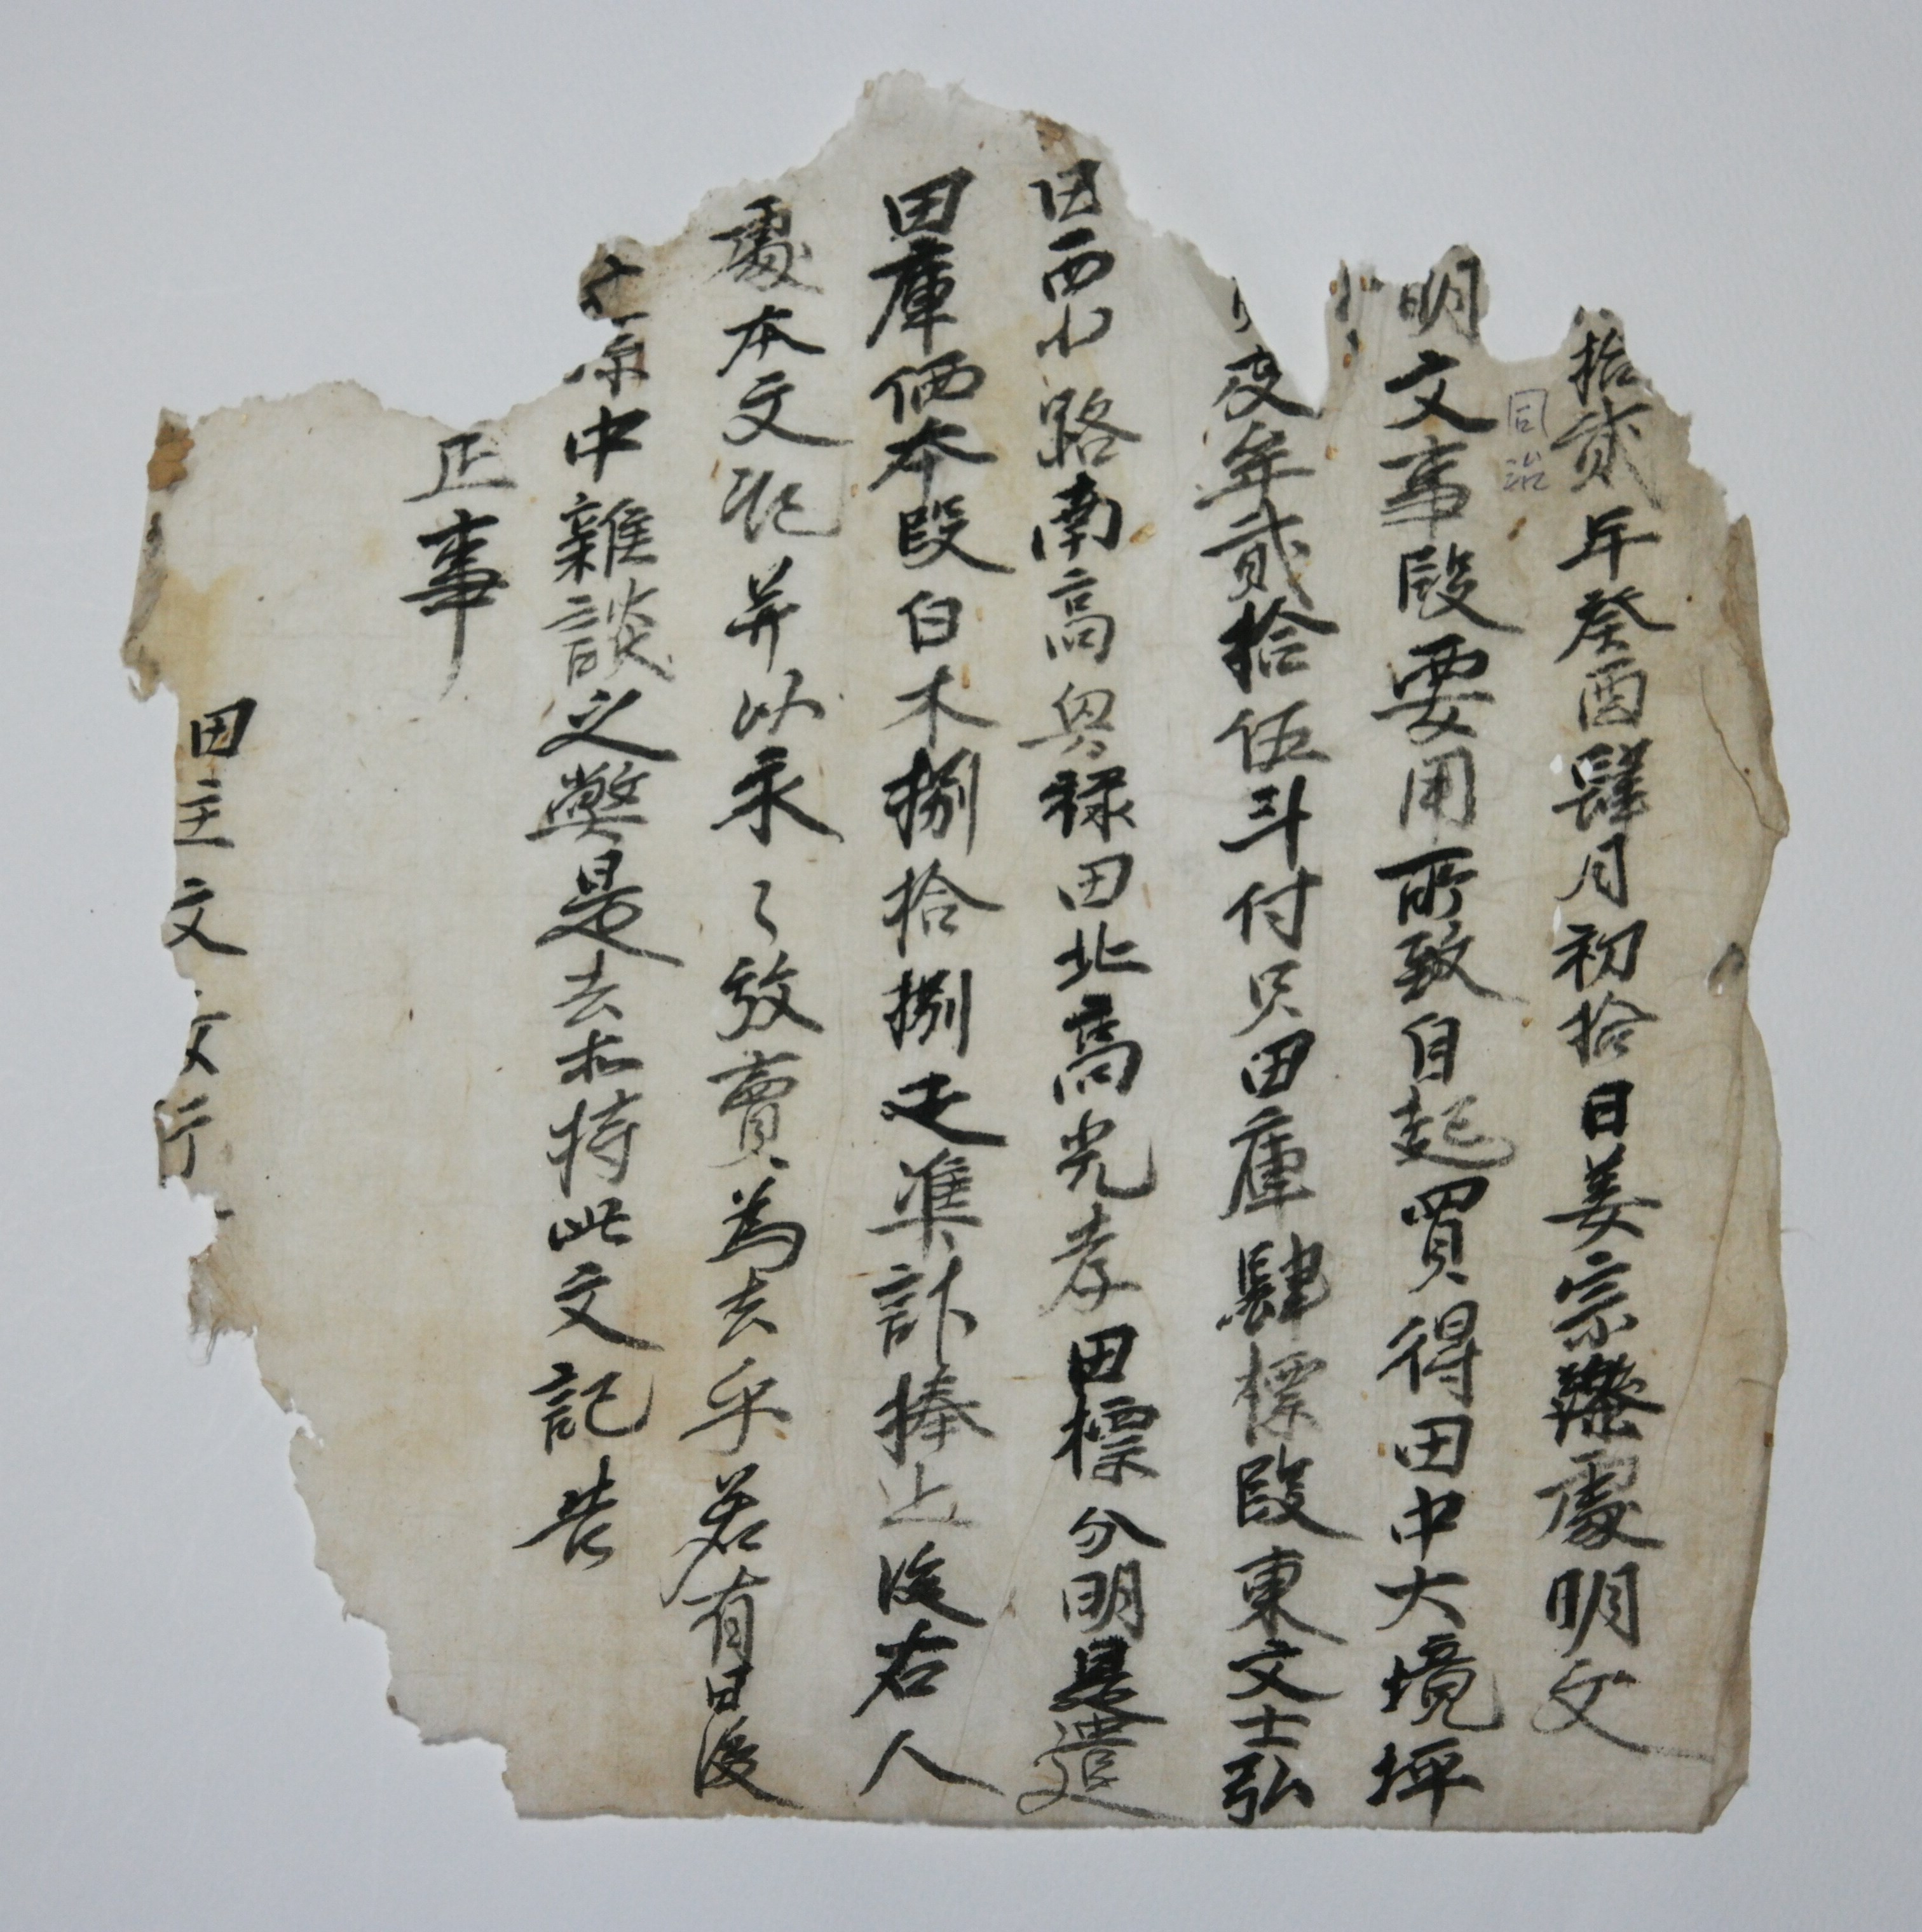 拾貳年癸酉肆月初拾日姜宗 處明文
同治
明文事段要用所致自起買得田中大境坪
皮牟貳拾伍斗付只田庫肆標段東文士弘
田西小路南高興祿田北高光孝田標分明是遣
田庫価本段白木捌拾捌疋準計捧上後右人
處本文記并以永〻放賣為去乎若有日後
中雜談之弊是去等持此文記告
正事
田主文 行